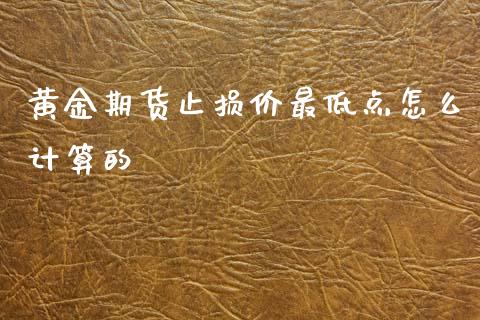 黄金期货止损价最低点怎么
计算的